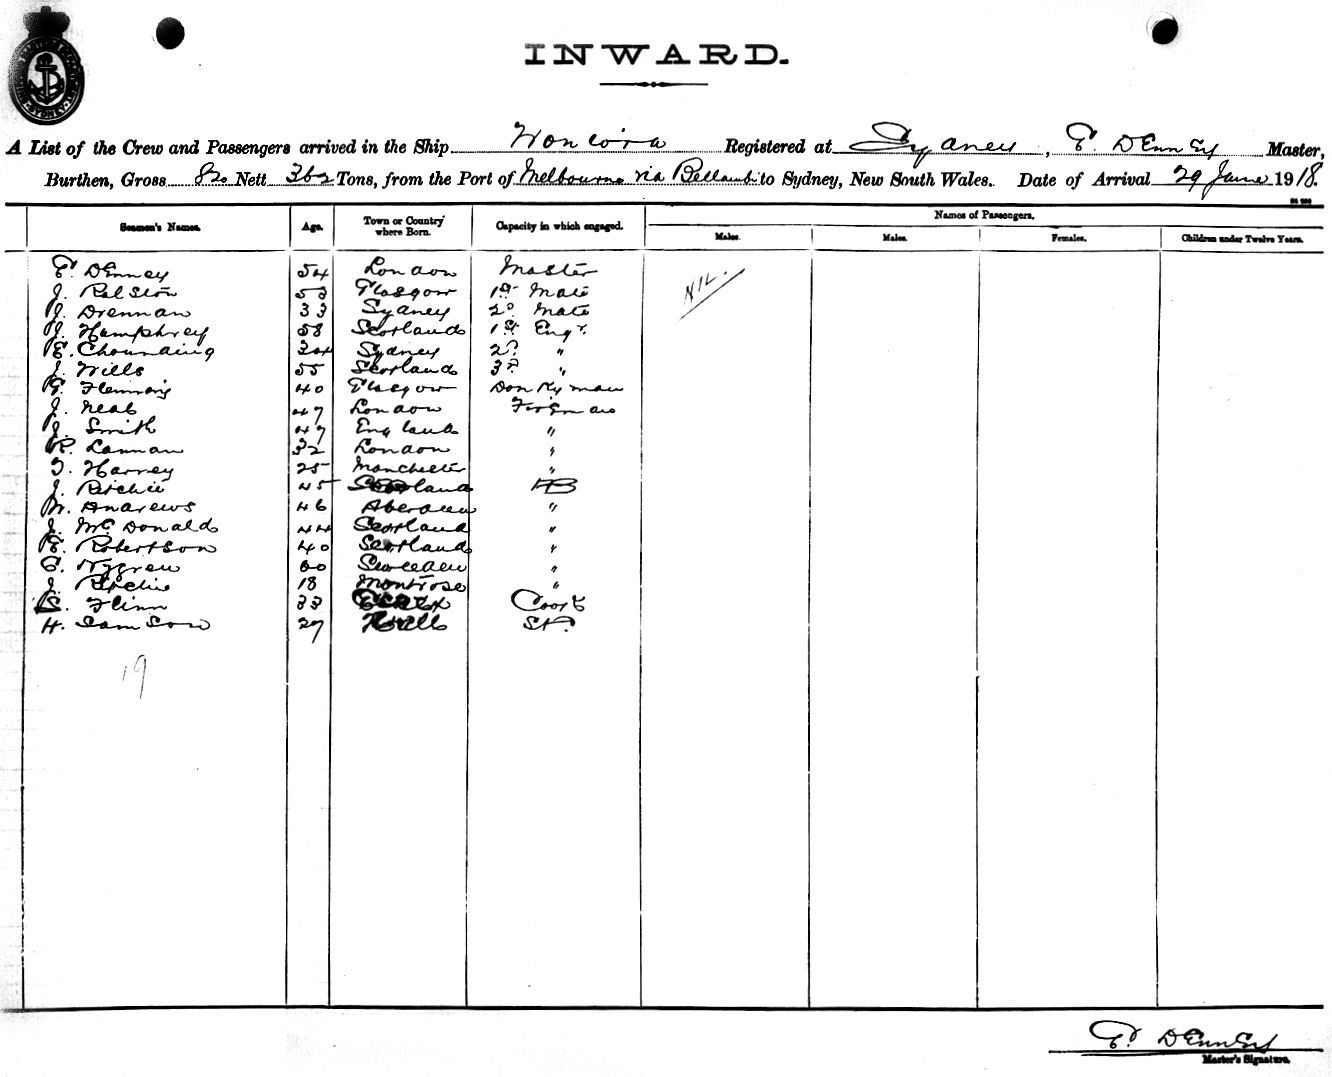 INWARD.
A List of the Crew and Passengers arrived in the Ship Woniora Registered at Sydney, E. Denney Master,
Burthen, Gross 820 Nett 362 Tons, from the Port of Melbourne via Bellambi to Sydney, New South Wales. Date of Arrival 29 June 1918.
Seamen's Names. Age. Town or Country where Born. Capacity in which engaged. Names of Passengers.
Males. Males. Females. Children under Twelve Years.
E. Denney 54 London Master NIL.
J. Ralston 53 Glasgow 1st Mate
J. Drennan 33 Sydney 2d Mate
J. Humphrey 58 Scotland 1st Engr.
E. 34 Sydney 2d "
J. Wills 55 Scotland 3d "
Fleming 40 Glasgow Donkyman
J. Neal 47 London Fireman
J. Smith 47 England "
R. Lannan 32 London "
T. Harvey 25 Manchester "
J. Ritchie 45 Scotland AB
W. Andrews 46 Aberdeen "
J. McDonald 44 Scotland "
E. Robertson 40 Scotland "
C. Nygren 60 Sweeden "
J. Ritchie 18 Montrose "
Flinn 33 Essex Cook
H. Samson 27 Hull Std
19
E. Denney
Master's Signature.